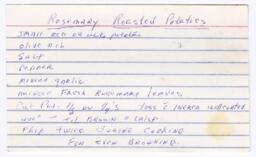 Rosemary Roasted Potatoes
SMALL RED OR WHITE POTATOES
OLIVE OIL
SALT
PEPPER
MINCED GARLIC
MINCED FRESH ROSEMARY LEAVES
CUT POT. 1/2 OR 1/4'S TOSS C INGRED
400° - TIL BROWN & CRISP
FLIP TWICE DURING COOKING
FOR EVEN BROWNING.